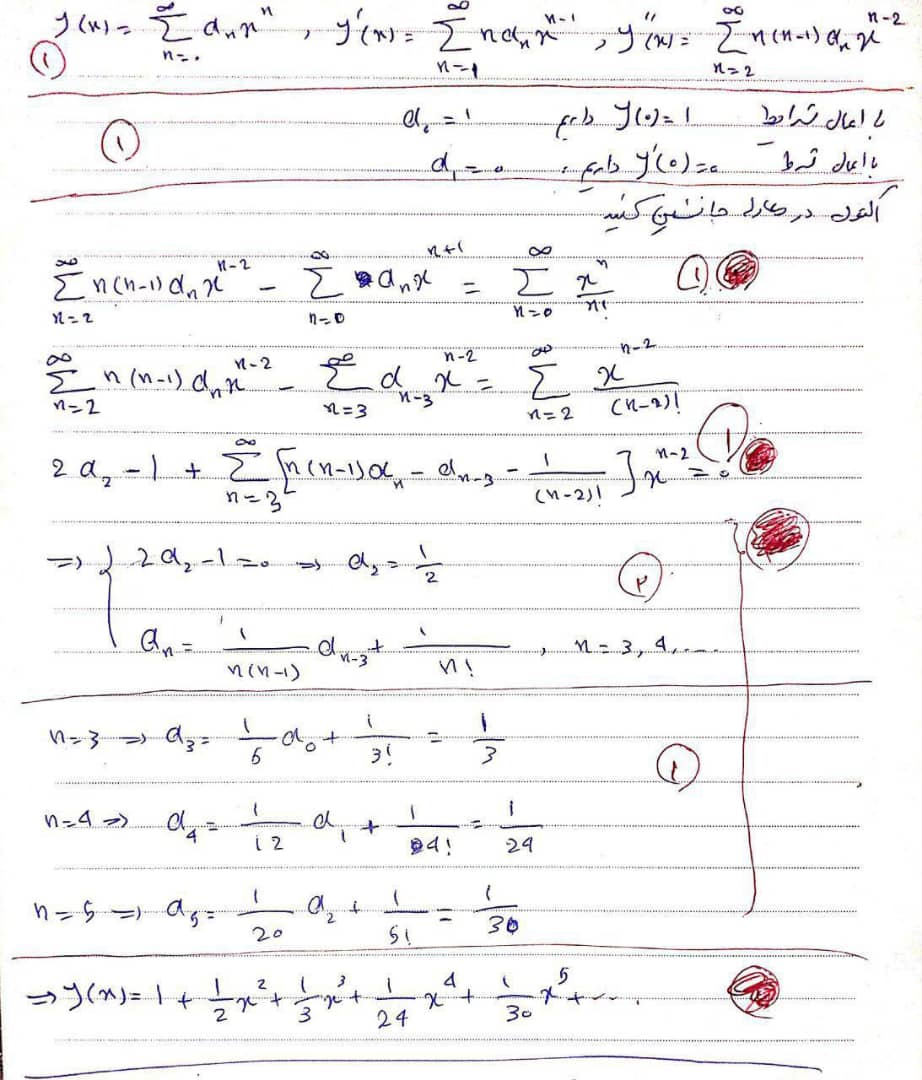 y(x) = ∑_{n=0}^{∞} a_n x^n , y'(x) = ∑_{n=1}^{∞} n a_n x^{n-1} , y''(x) = ∑_{n=2}^{∞} n(n-1) a_n x^{n-2}
①
با اعمال شرایط y(0)=1 داریم a_0 = 1
①
با اعمال شرط y'(0)=0 داریم a_1 = 0
اکنون در معادله جانشین کنید
∑_{n=2}^{∞} n(n-1) a_n x^{n-2} - ∑_{n=0}^{∞} a_n x^{n+1} = ∑_{n=0}^{∞} x^n/n! ①
∑_{n=2}^{∞} n(n-1) a_n x^{n-2} - ∑_{n=3}^{∞} a_{n-3} x^{n-2} = ∑_{n=2}^{∞} x^{n-2}/(n-2)!
2a_2 - 1 + ∑_{n=3}^{∞} [n(n-1)a_n - a_{n-3} - 1/(n-2)!] x^{n-2} = 0 ①
⇒ { 2a_2 - 1 = 0 ⇒ a_2 = 1/2 ②
a_n = 1/(n(n-1)) a_{n-3} + 1/n! , n = 3, 4, ....
n=3 ⇒ a_3 = 1/6 a_0 + 1/3! = 1/3
①
n=4 ⇒ a_4 = 1/12 a_1 + 1/4! = 1/24
n=5 ⇒ a_5 = 1/20 a_2 + 1/5! = 1/30
⇒ y(x) = 1 + 1/2 x^2 + 1/3 x^3 + 1/24 x^4 + 1/30 x^5 + ....